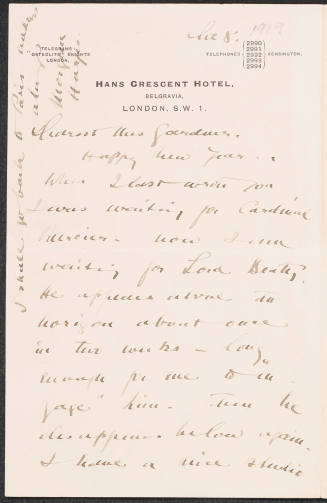 1919
TELEGRAMS
OSTEOLITE KNIGHTS
LONDON.
TELEPHONES
2990
2991
2992
2993
2994
KENSINGTON.
HANS CRESCENT HOTEL,
BELGRAVIA,
LONDON, S.W. 1.
Dearest Mrs Gardner.
Happy New Year..
When I last wrote you
I was waiting for Cardinal
Mercier. now I am
waiting for Lord Beatty.
He appears above the
horizon about once
in two weeks – long
enough for me to "en
gage" him. Then he
disappears below again.
I have a nice studio
I shall go back to Paris
Morgan
Harjes